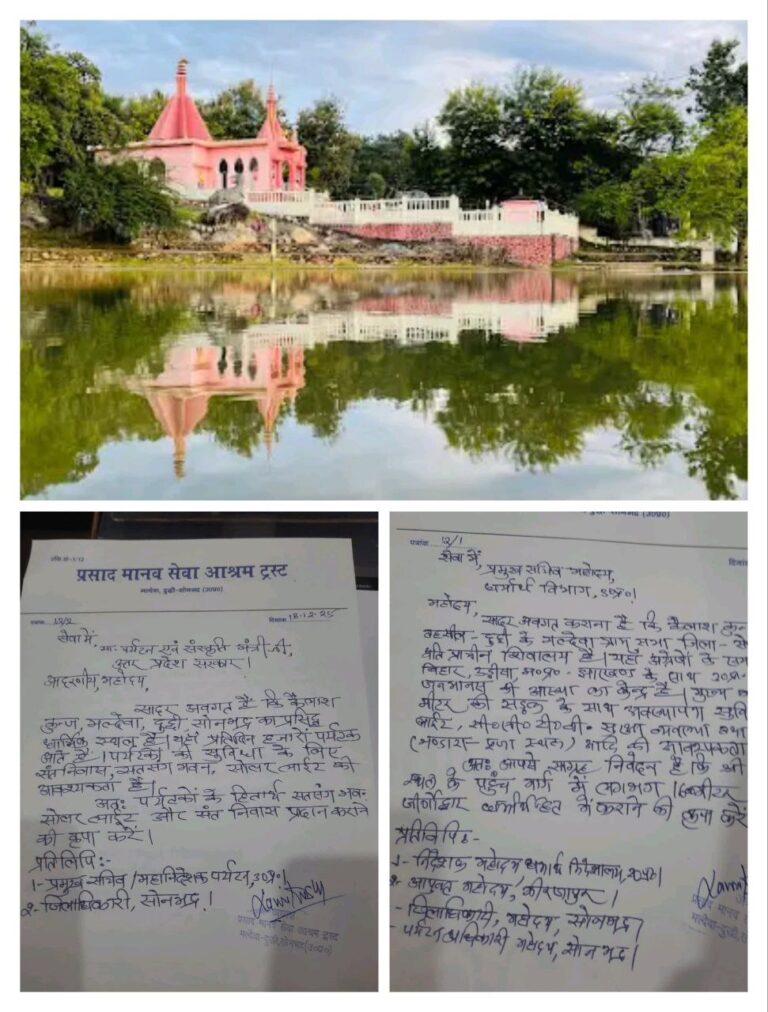 प्रसाद मानव सेवा आश्रम ट्रस्ट
मल्देवा, दुद्धी-सोनभद्र (उ०प्र०)
पत्रांक 12/2 दिनांक 18-12-25
सेवा में,
मा० पर्यटन एवं संस्कृति मंत्री जी,
उत्तर प्रदेश सरकार।
आदरणीय महोदय,
सादर अवगत है कि कैलाश
कुन्ज, मल्देवा, दुद्धी, सोनभद्र का प्रसिद्ध
धार्मिक स्थल है। यहाँ प्रतिदिन हजारों पर्यटक
आते हैं। पर्यटकों की सुविधा के लिए
संत निवास, सतसंग भवन, सोलर लाईट की
आवश्यकता है।
अतः पर्यटकों के हितार्थ सतसंग भवन
सोलर लाईट और संत निवास प्रदान कराने
की कृपा करें।
प्रतिलिपि:-
1- प्रमुख सचिव/महानिदेशक पर्यटन, उ०प्र०।
2- जिलाधिकारी, सोनभद्र।
प्रसाद मानव सेवा आश्रम ट्रस्ट
मल्देवा-दुद्धी, सोनभद्र (उ०प्र०)
दुद्धी-सोनभद्र (उ०प्र०)
पत्रांक 12/1
सेवा में,
प्रमुख सचिव महोदय,
धर्मार्थ विभाग, उ०प्र०।
महोदय,
सादर अवगत कराना है कि कैलाश कुन
तहसील-दुद्धी के मल्देवा ग्राम सभा जिला-
अति प्राचीन शिवालय है। यहाँ अंग्रेजों के
बिहार, उड़ीसा, म०प्र० झारखण्ड के साथ उ०प्र०
जनमानस की आस्था का केन्द्र है। मुख्य
मीटर की सड़क के साथ अवस्थापना
लाईट, सी०सी० टी०वी० सुरक्षा व्यवस्था तथा
(भण्डारा- पूजा स्थल) आदि की आवश्यकता
अतः आपसे साग्रह निवेदन है कि
स्थल के पहुँच मार्ग में लगभग
जीर्णोद्धार कराने की कृपा करें
प्रतिलिपि:-
1- निदेशक महोदय धर्मार्थ निदेशालय, उ०प्र०।
2- आयुक्त महोदय, मीरजापुर।
- जिलाधिकारी, महोदय, सोनभद्र।
- पर्यटन अधिकारी महोदय, सोनभद्र।